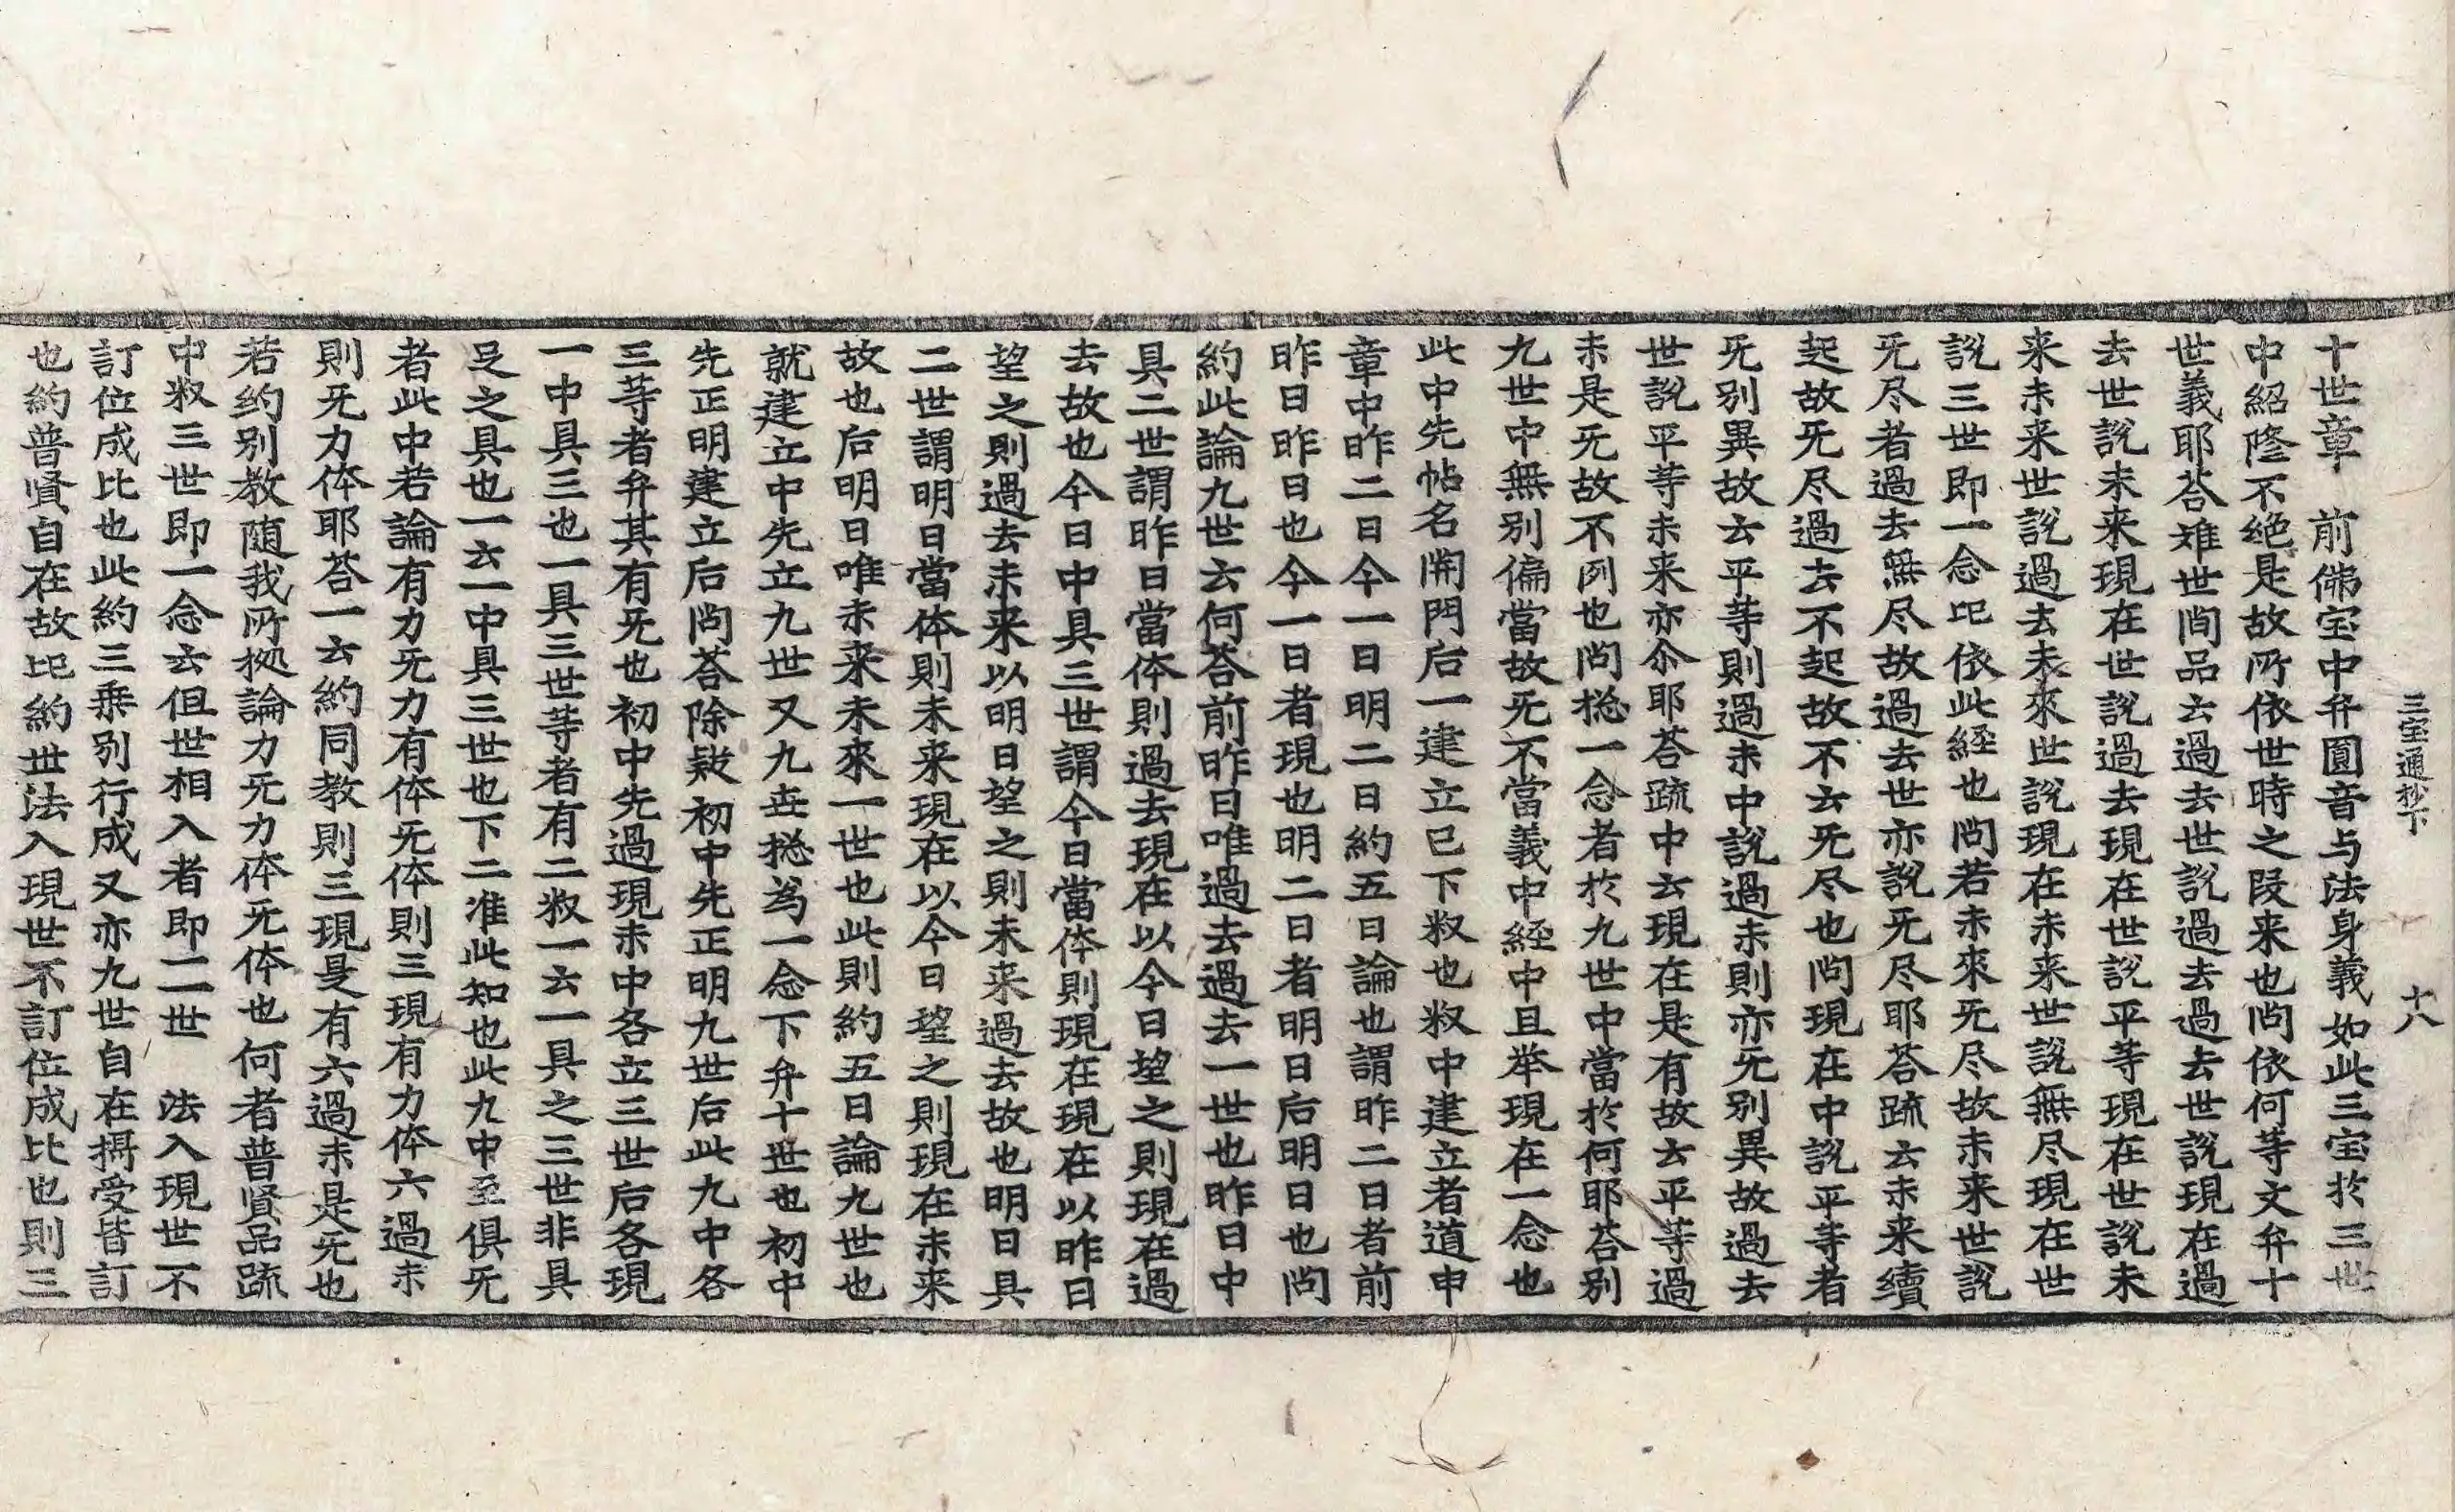 三宝通抄下　十八
十世章　前佛宝中弁圓音与法身義如此三宝扵三世
中紹隆不絶是故所依世時之段来也问依何等文弁十
世義耶荅雉世间品云過去世說過去過去世說現在過
去世說未来現在世說過去現在世說平等現在世說未
来未来世說過去未來世說現在未来世說無尽現在世
說三世即一念比依此経也问若未來旡尽故未来世說
旡尽者過去無尽故過去世亦說旡尽耶荅䟽云未来續
起故旡尽過去不起故不云旡尽也问現在中說平等者
旡别異故云平等則過未中說過未則亦旡别異故過去
世說平等未来亦尒耶荅䟽中云現在是有故云平等過
未是旡故不例也问㧾一念者扵九世中當扵何耶荅别
九世中無别偏當故旡不當義中経中且举現在一念也
此中先帖名開門后一建立已下㪽也㪽中建立者道申
章中昨二日今一日明二日約五日論也謂昨二日者前
昨日昨日也今一日者現也明二日者明日后明日也问
約此論九世云何荅前昨日唯過去過去一世也昨日中
具二世謂昨日當体則過去現在以今日望之則現在過
去故也今日中具三世謂今日當体則現在現在以昨日
望之則過去未来以明日望之則未来過去故也明日具
二世謂明日當体則未来現在以今日望之則現在未来
故也后明日唯未来未來一世也此則約五日論九世也
就建立中先立九世又九世㧾為一念下弁十世也初中
先正明建立后问荅除疑初中先正明九世后此九中各
三等者弁其有旡也初中先過現未中各立三世后各現
一中具三也一具三世等者有二㪽一云一具之三世非具
足之具也一云一中具三世也下二准此知也此九中至俱旡
者此中若論有力旡力有体旡体則三現有力体六過未
則旡力体耶荅一云約同教則三現是有六過未是旡也
若约别教隨我所㧾論力旡力体旡体也何者普賢品䟽
中㪽三世即一念云但世相入者即二世　法入現世不
訂位成比也此約三乗别行成又亦九世自在攝受皆訂
也約普賢自在故比約世法入現世不訂位成比也則三